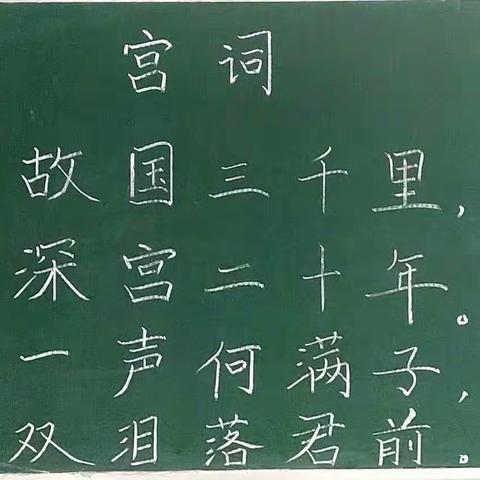 宫词
故国三千里，
深宫二十年。
一声何满子，
双泪落君前。